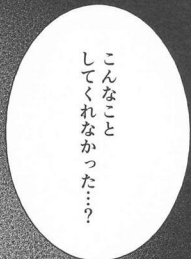 こんなこと
してくれなかった…?